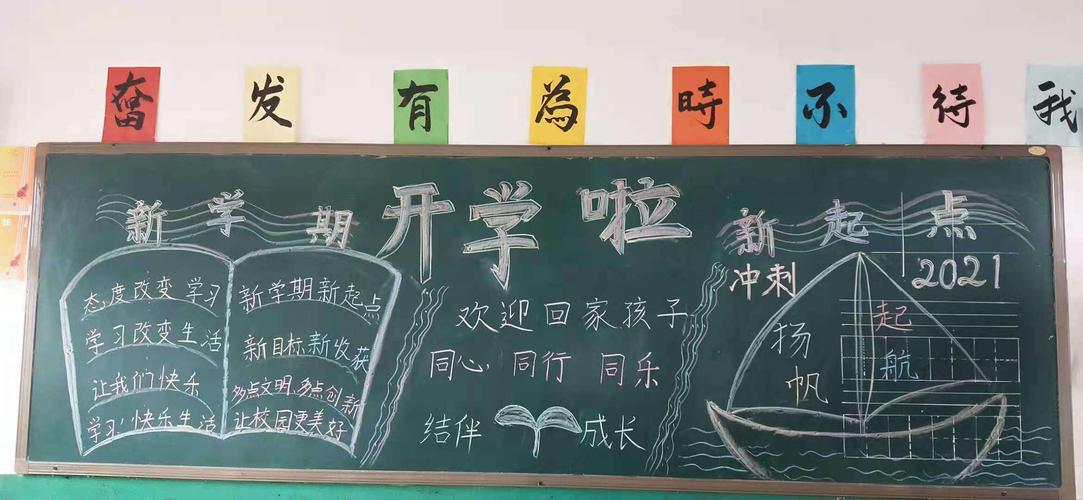 奮发有為時不待我
新学期
开学啦
新起点
态度改变学习
学习改变生活
让我们快乐
学习！快乐生活
新学期新起点
新目标新收获
多点文明，多点创新
让校园更美好
欢迎回家孩子
同心，同行 同乐
结伴 成长
冲刺 2021
扬帆
起航